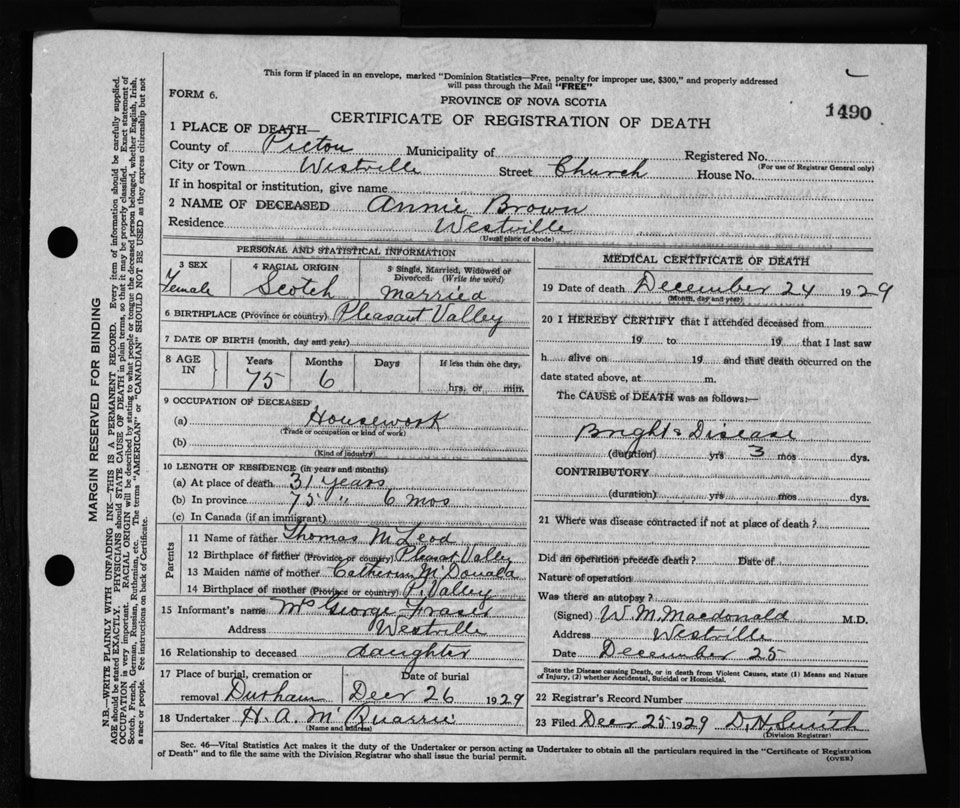 This form if placed in an envelope, marked "Dominion Statistics—Free, penalty for improper use, $300," and properly addressed
will pass through the Mail "FREE"
FORM 6.
PROVINCE OF NOVA SCOTIA
1490
CERTIFICATE OF REGISTRATION OF DEATH
1 PLACE OF DEATH—
County of Pictou Municipality of Registered No.
(For use of Registrar General only)
City or Town Westville Street Church House No.
If in hospital or institution, give name
2 NAME OF DECEASED Annie Brown
Residence Westville
(Usual place of abode)
PERSONAL AND STATISTICAL INFORMATION
3 SEX 4 RACIAL ORIGIN 5 Single, Married, Widowed or
Divorced. (Write the word)
Female Scotch Married
6 BIRTHPLACE (Province or country) Pleasant Valley
7 DATE OF BIRTH (month, day and year)
8 AGE IN Years Months Days If less than one day.
75 6 hrs. or min.
9 OCCUPATION OF DECEASED
(a) Housework
(Trade or occupation or kind of work)
(b)
(Kind of industry)
10 LENGTH OF RESIDENCE (in years and months)
(a) At place of death 31 years
(b) In province 75 " 6 mos
(c) In Canada (if an immigrant)
Parents
11 Name of father Thomas McLeod
12 Birthplace of father (Province or country) Pleasat Valley
13 Maiden name of mother Catherin McDonald
14 Birthplace of mother (Province or country) P. Valley
15 Informant's name Mrs George Fraser
Address Westville
16 Relationship to deceased daughter
17 Place of burial, cremation or Date of burial
removal Durham Decr 26 1929
18 Undertaker H. A. McQuarrie
(Name and address)
MEDICAL CERTIFICATE OF DEATH
19 Date of death December 24 1929
(Month, day and year)
20 I HEREBY CERTIFY that I attended deceased from
19 to 19 that I last saw
h alive on 19 and that death occurred on
date stated above, at m.
The CAUSE of DEATH was as follows:—
Brights Disease
(duration) yrs 3 mos dys.
CONTRIBUTORY
(duration) yrs mos dys.
21 Where was disease contracted if not at place of death?
Did an operation precede death? Date of
Nature of operation
Was there an autopsy?
(Signed) W. M. Macdonald M.D.
Address Westville
Date December 25
State the Disease causing Death, or in death from Violent Causes, state (1) Means and Nature
of Injury, (2) whether Accidental, Suicidal or Homicidal.
22 Registrar's Record Number
23 Filed Decr 25 1929 D. H. Smith
(Division Registrar)
Sec. 46—Vital Statistics Act makes it the duty of the Undertaker or person acting as Undertaker to obtain all the particulars required in the "Certificate of Registration
of Death" and to file the same with the Division Registrar who shall issue the burial permit.
(OVER)
MARGIN RESERVED FOR BINDING
N.B.—WRITE PLAINLY WITH UNFADING INK—THIS IS A PERMANENT RECORD. Every item of information should be carefully supplied.
AGE should be stated EXACTLY. PHYSICIANS should STATE CAUSE OF DEATH in plain terms, so that it may be properly classified. Exact statement of
OCCUPATION is very important. RACIAL ORIGIN will be described by stating to what people or tongue the deceased person belonged, whether English, Irish,
Scotch, French, German, Russian, Ruthenian, etc. The terms "AMERICAN" or "CANADIAN" SHOULD NOT BE USED as they express citizenship but not
a race or people. See instructions on back of Certificate.